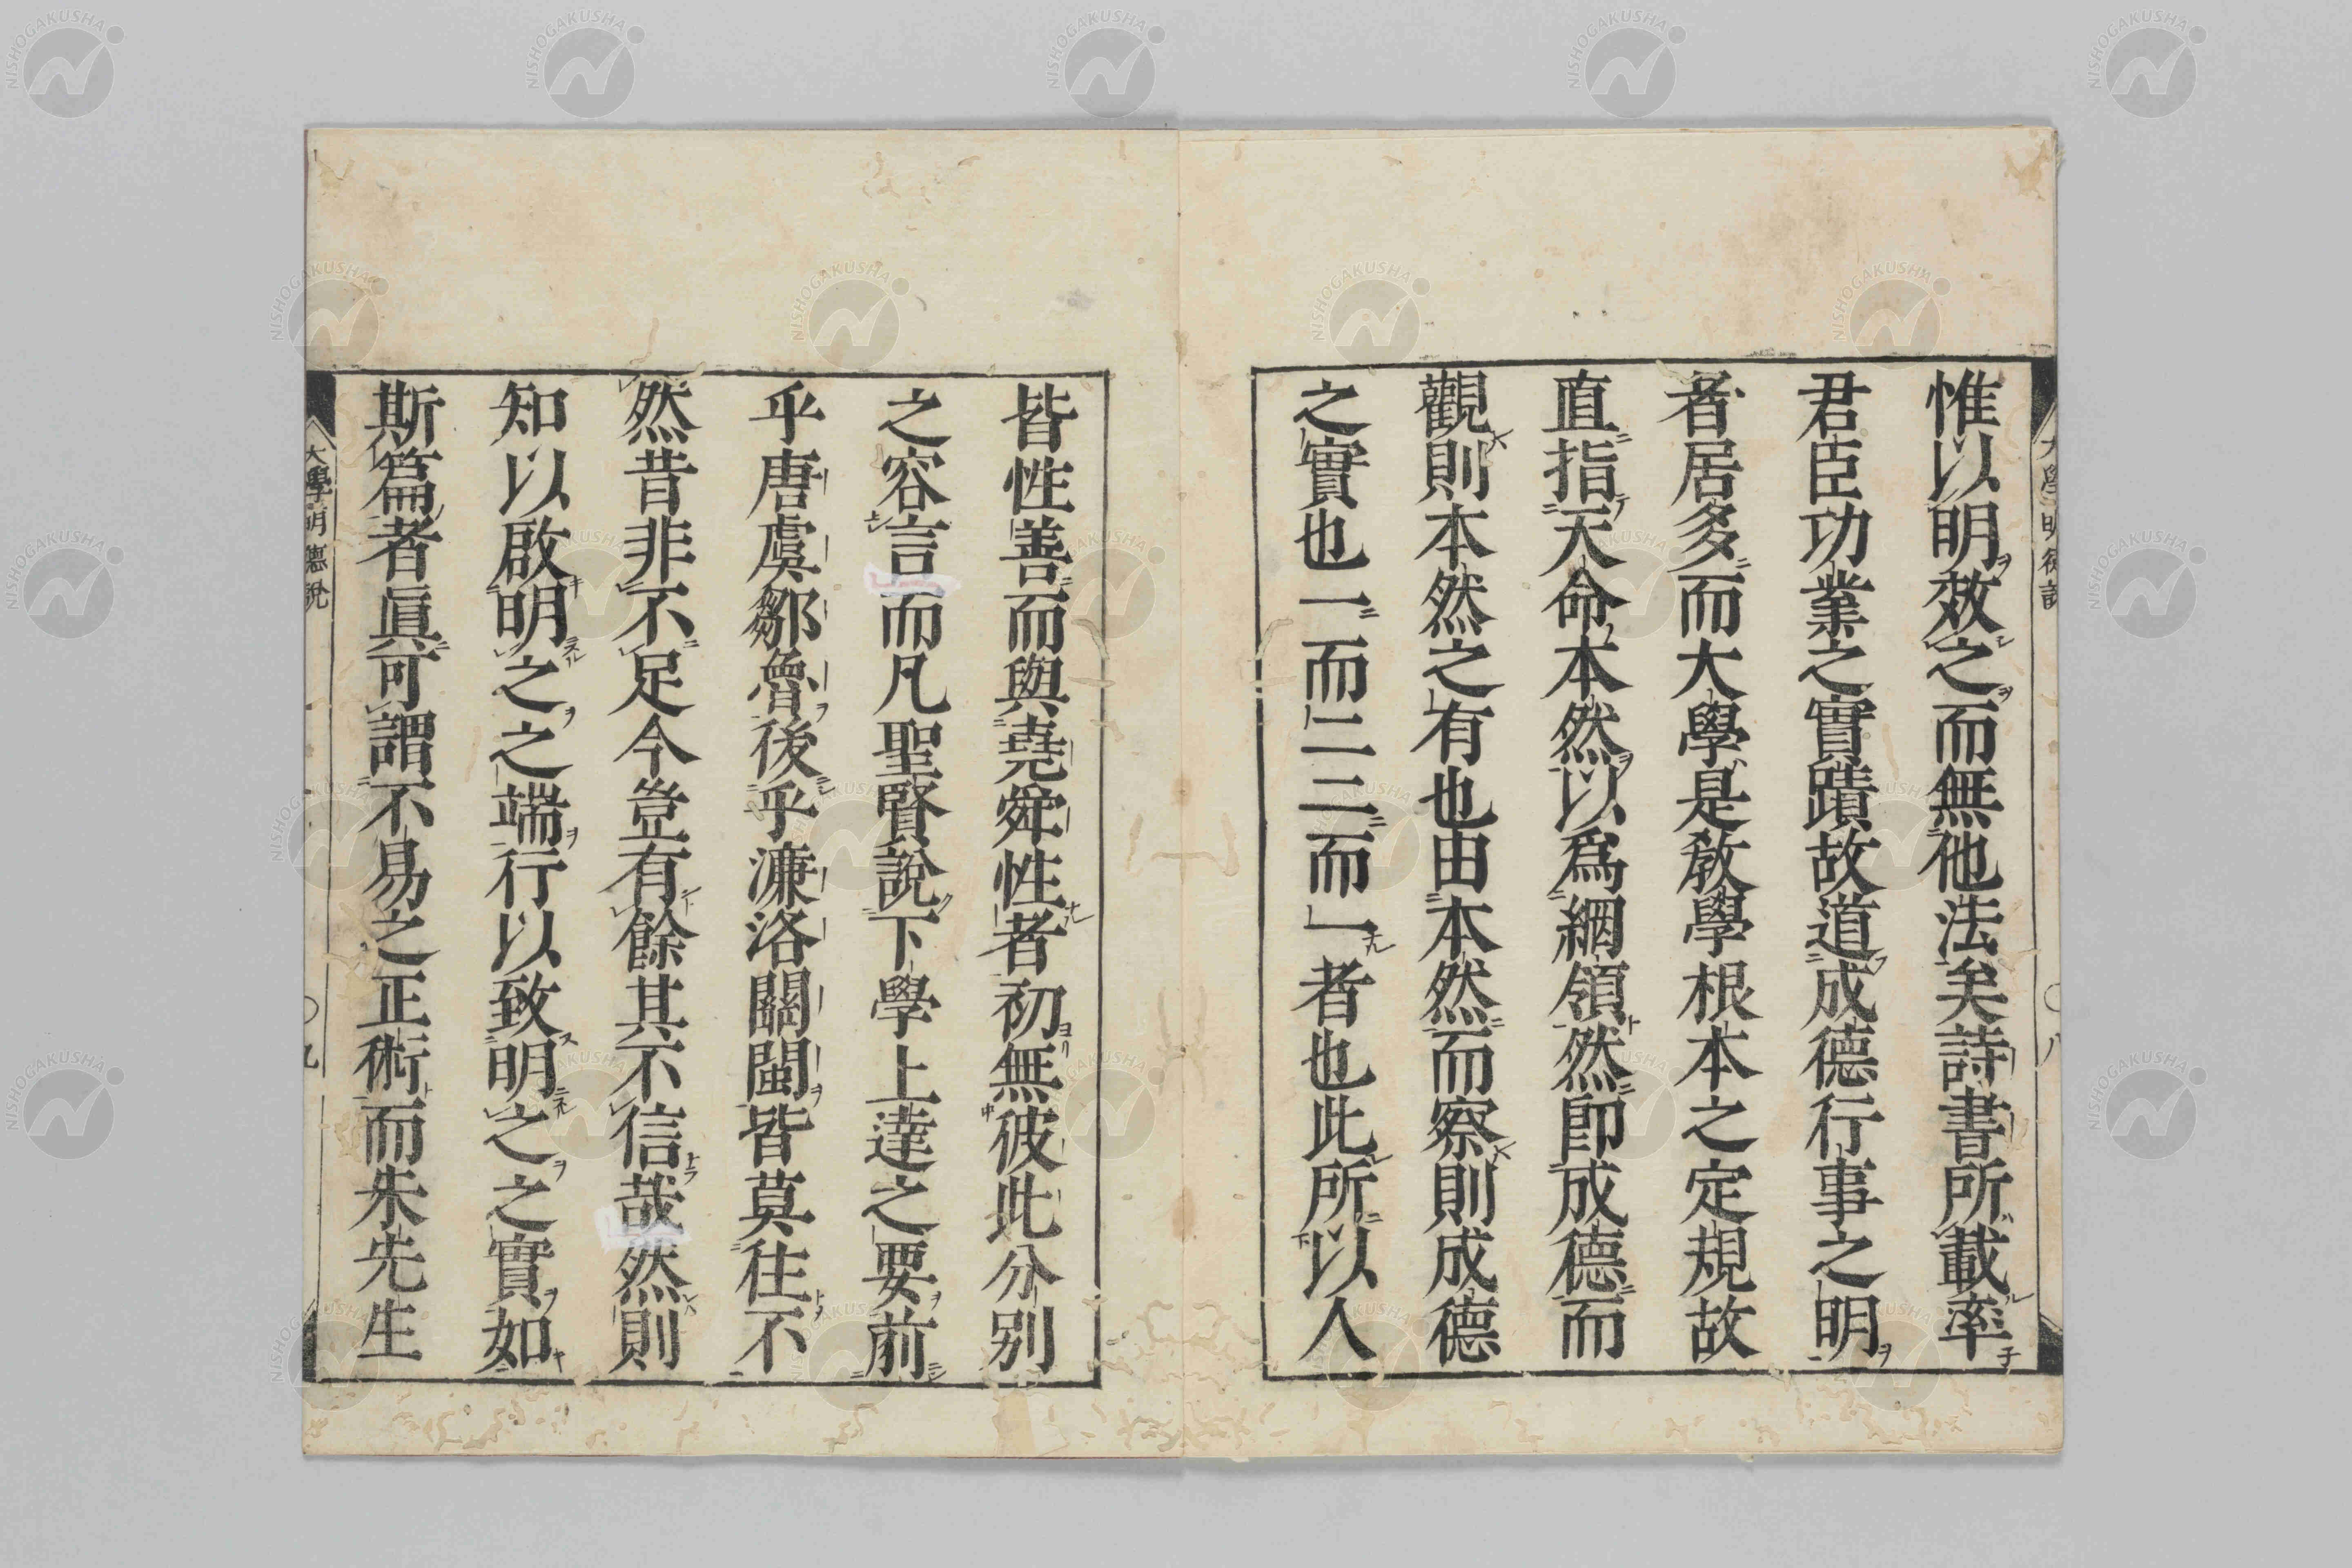 惟以明效之而無他法矣詩書所載率
君臣功業之實蹟故道成德行事之明
者居多而大學是敎學根本之定規故
直指天命本然以爲綱領然卽成德而
觀則本然之有也由本然而察則成德
之實也一而二二而一者也此所以人
皆性善而與堯舜性者初無彼此分別
之容言而凡聖賢說下學上達之要前
乎唐虞鄒魯後乎濂洛關閩皆莫往不
然昔非不足今豈有餘其不信哉然則
知以啟明之之端行以致明之之實如
斯篇者眞可謂不易之正術而朱先生
大學明德說
九